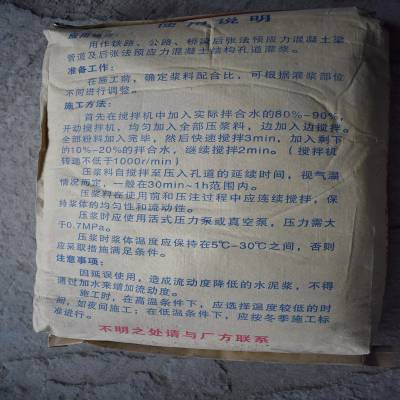 使用说明
应用领域:
用作铁路、公路、桥梁后张法预应力混凝土梁
管道及后张法预应力混凝土结构孔道灌浆。
准备工作:
在施工前,确定浆料配合比,可根据灌浆部位
不同进行调整。
施工方法:
首先在搅拌机中加入实际拌合水的80%-90%,
开动搅拌机,均匀加入全部压浆料,边加入边搅拌。
全部粉料加入完毕,然后快速搅拌3min,加入剩下
的10%-20%的拌合水,继续搅拌2min。(搅拌机
转速不低于1000r/min)
压浆料自搅拌至压入孔道的延续时间,视气温
情况而定,一般在30min~1h范围内。
压浆料在使用前和压注过程中应连续搅拌,保
持浆体的均匀性和流动性。
压浆时应使用活式压力泵或真空泵,压力需大
于0.7MPa。
压浆时浆体温度应保持在5℃-30℃之间,否则
应采取措施满足条件。
注意事项:
因延误使用,造成流动度降低的水泥浆,不得
通过加水来增加流动度。
施工时,在高温条件下,应选择温度较低的时
间,如夜间施工;在低温条件下,应按冬季施工标
准进行。
不明之处请与厂方联系